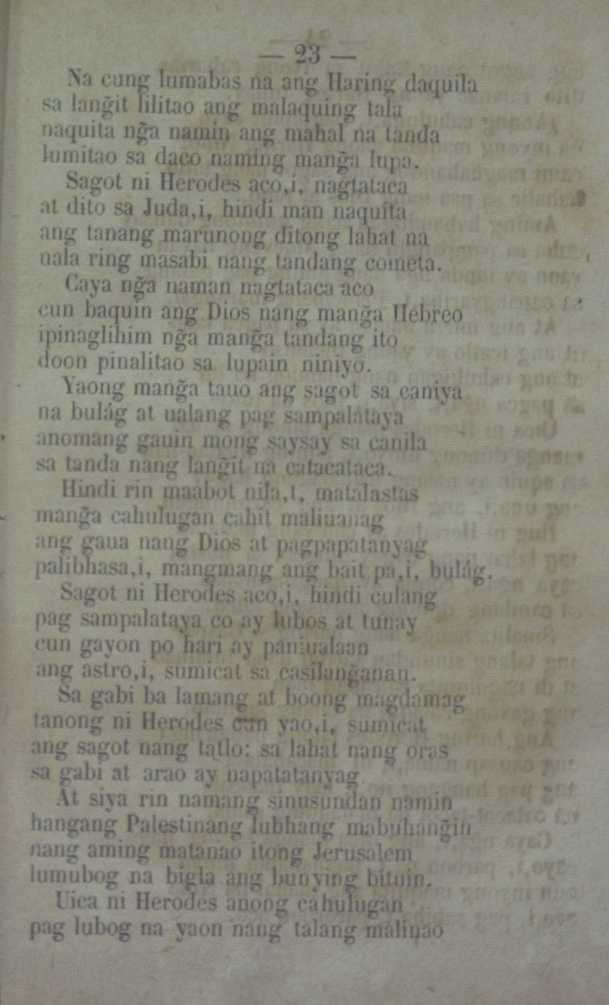 — 23 —
Na cung lumabas na ang Haring daquila
sa lang̃it lilitao ang malaquing tala
naquita ng̃a namin ang mahal na tanda
lumitao sa daco naming mang̃a lupa.
Sagot ni Herodes aco,i, nagtataca
at dito sa Juda,i, hindi man naquita
ang tanang marunong ditong lahat na
uala ring masabi nang tandang cometa.
Caya ng̃a naman nagtataca aco
cun baquin ang Dios nang mang̃a Hebreo
ipinaglihim ng̃a mang̃a tandang ito
doon pinalitao sa lupain niniyo.
Yaong mang̃a tauo ang sagot sa caniya
na bulág at ualang pag sampalátaya
anomang gauin mong saysay sa canila
sa tanda nang lang̃it na catacataca.
Hindi rin maabot nila,t, matalastas
mang̃a cahulugan cahit maliuanag
ang gaua nang Dios at pagpapatanyag
palibhasa,i, mangmang ang bait pa,i, bulág.
Sagot ni Herodes aco,i, hindi culang
pag sampalataya co ay lubos at tunay
cun gayon po hari ay paniualaan
ang astro,i, sumicat sa casilang̃anan.
Sa gabi ba lamang at boong magdamag
tanong ni Herodes cun yao,i, sumicat
ang sagot nang tatlo: sa lahat nang oras
sa gabi at arao ay napatatanyag
At siya rin namang sinusundan namin
hangang Palestinang lubhang mabuhang̃in
nang aming matanao itong Jerusalem
lumubog na bigla ang bunying bituin.
Uica ni Herodes anong cahulugan
pag lubog na yaon nang talang malinao